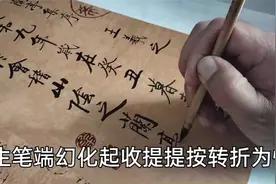 王羲之
和九年歲在癸丑暮
會稽山陰之蘭
笔端幻化起收提提按转折为